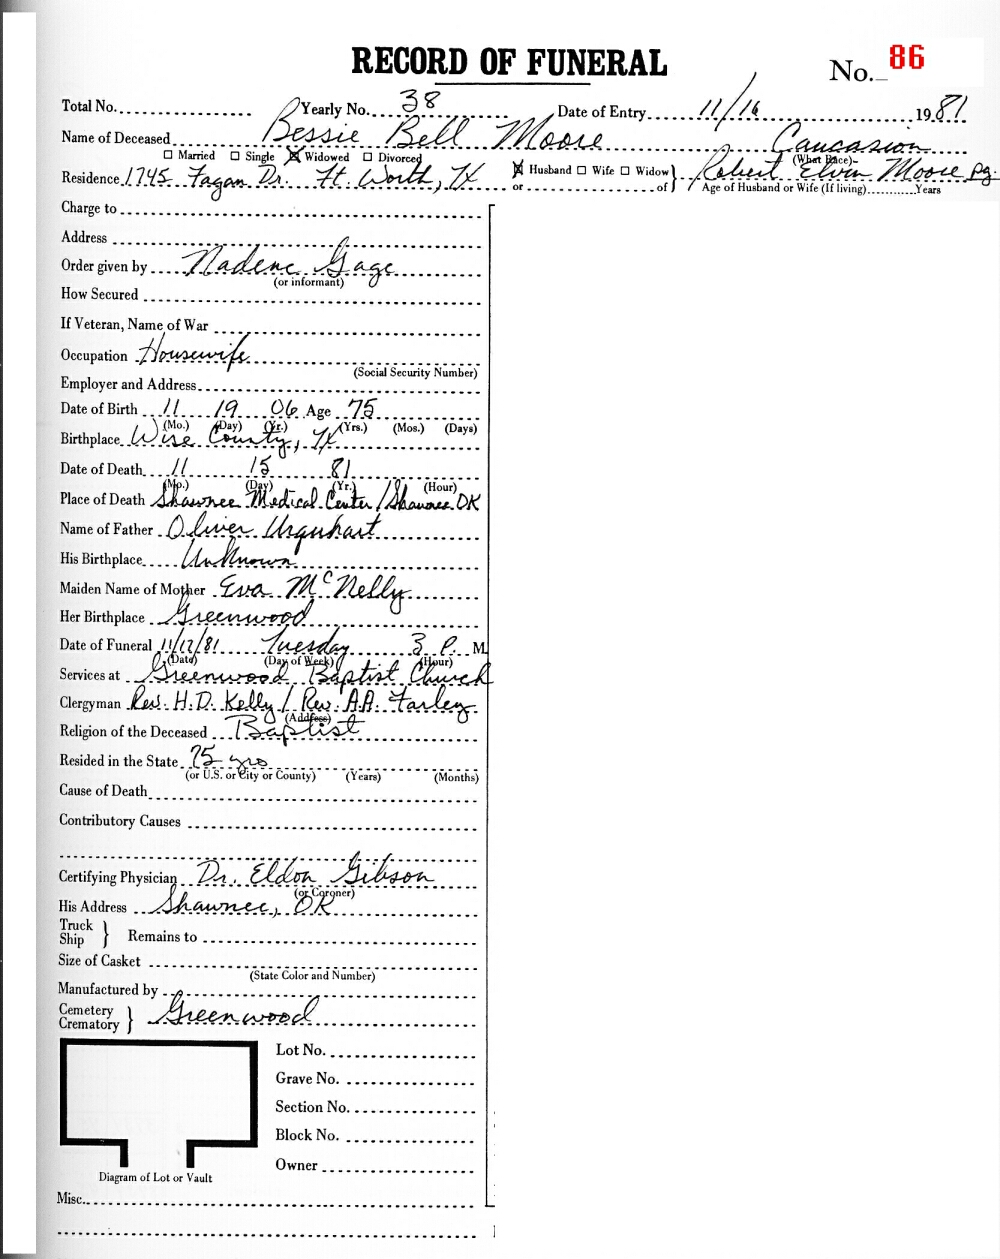 RECORD OF FUNERAL
No. 86
Total No. Yearly No. 38 Date of Entry 11/16 1981
Name of Deceased Bessie Bell Moore Caucasion
☐ Married ☐ Single ☒ Widowed ☐ Divorced (What Race)
Residence 1745 Fagan Dr. Ft. Worth, TX ☒ Husband ☐ Wife ☐ Widow or of } Robert Elvin Moore
Age of Husband or Wife (If living) Years
Charge to
Address
Order given by Nadene Gage
(or informant)
How Secured
If Veteran, Name of War
Occupation Housewife
(Social Security Number)
Employer and Address
Date of Birth 11 19 06 Age 75
(Mo.) (Day) (Yr.) (Yrs.) (Mos.) (Days)
Birthplace Wise County, TX
Date of Death 11 15 81
(Mo.) (Day) (Yr.) (Hour)
Place of Death Shawnee Medical Center / Shawnee OK
Name of Father Oliver Urquhart
His Birthplace Unknown
Maiden Name of Mother Eva McNelly
Her Birthplace Greenwood
Date of Funeral 11/17/81 Tuesday 3 P. M.
(Date) (Day of Week) (Hour)
Services at Greenwood Baptist Church
Clergyman Rev. H.D. Kelly / Rev. A.A. Farley
(Address)
Religion of the Deceased Baptist
Resided in the State 75 yrs
(or U.S. or City or County) (Years) (Months)
Cause of Death
Contributory Causes
Certifying Physician Dr. Eldon Gibson
(or Coroner)
His Address Shawnee, OK
Truck
Ship } Remains to
Size of Casket
(State Color and Number)
Manufactured by
Cemetery
Crematory } Greenwood
Lot No.
Grave No.
Section No.
Block No.
Owner
Diagram of Lot or Vault
Misc.